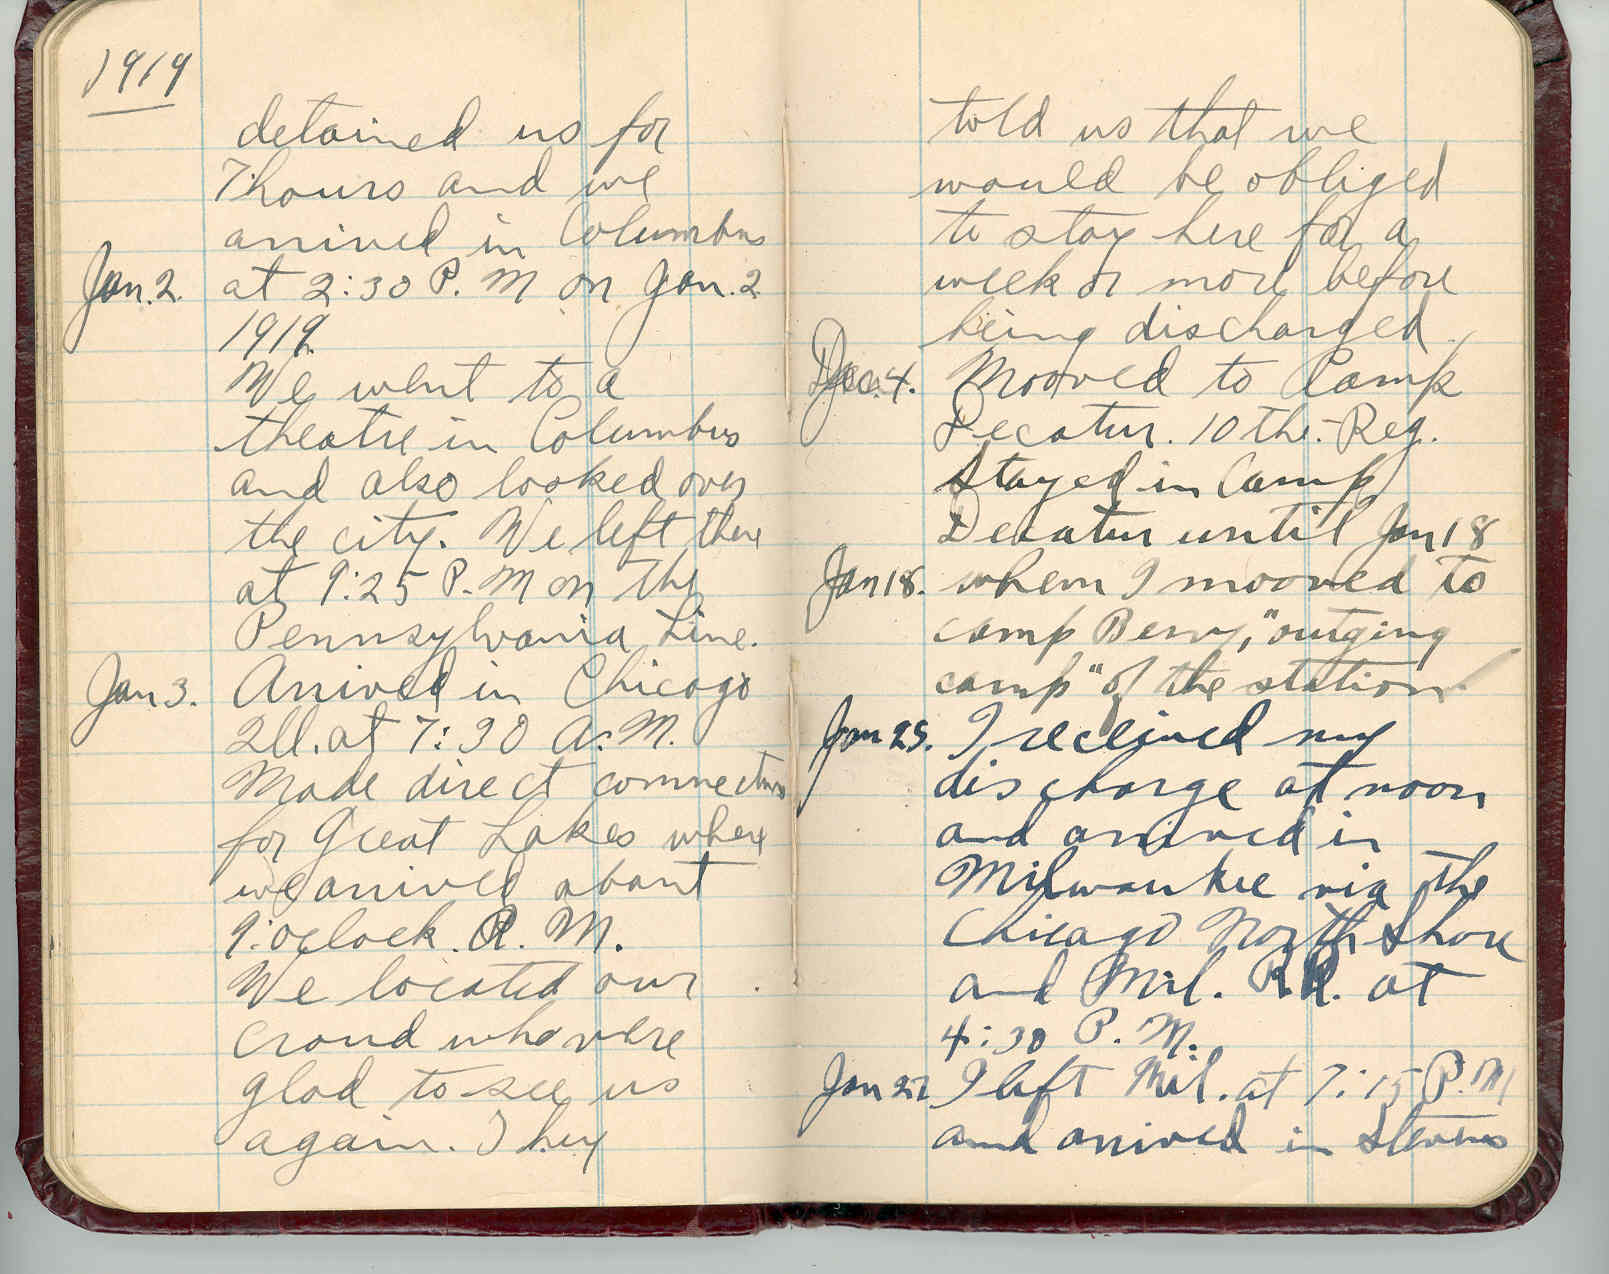 1919
detained us for
7 hours and we
arrived in Columbus
Jan. 2. at 2:30 P. M on Jan. 2
1919.
We went to a
theatre in Columbus
and also looked over
the city. We left there
at 9:25 P. M on the
Pennsylvania Line.
Jan 3. Arrived in Chicago
Ill. at 7:30 A. M.
Made direct connections
for Great Lakes where
we arrived about
9:oclock. A. M.
We located our
crowd who were
glad to see us
again. They
told us that we
would be obliged
to stay here for a
week or more before
being discharged.
Dec. 4. Mooved to Camp
Decatur. 10 the. Reg.
Stayed in Camp
Decatur until Jan 18
Jan 18. when I mooved to
camp Berry, "outging
camp" of the station.
Jan 25. I received my
discharge at noon
and arrived in
Milwaukee via the
Chicago North Shore
and Mil. R.R. at
4:30 P. M.
Jan 27 I left Mil. at 7:15 P. M
and arrived in Stevens